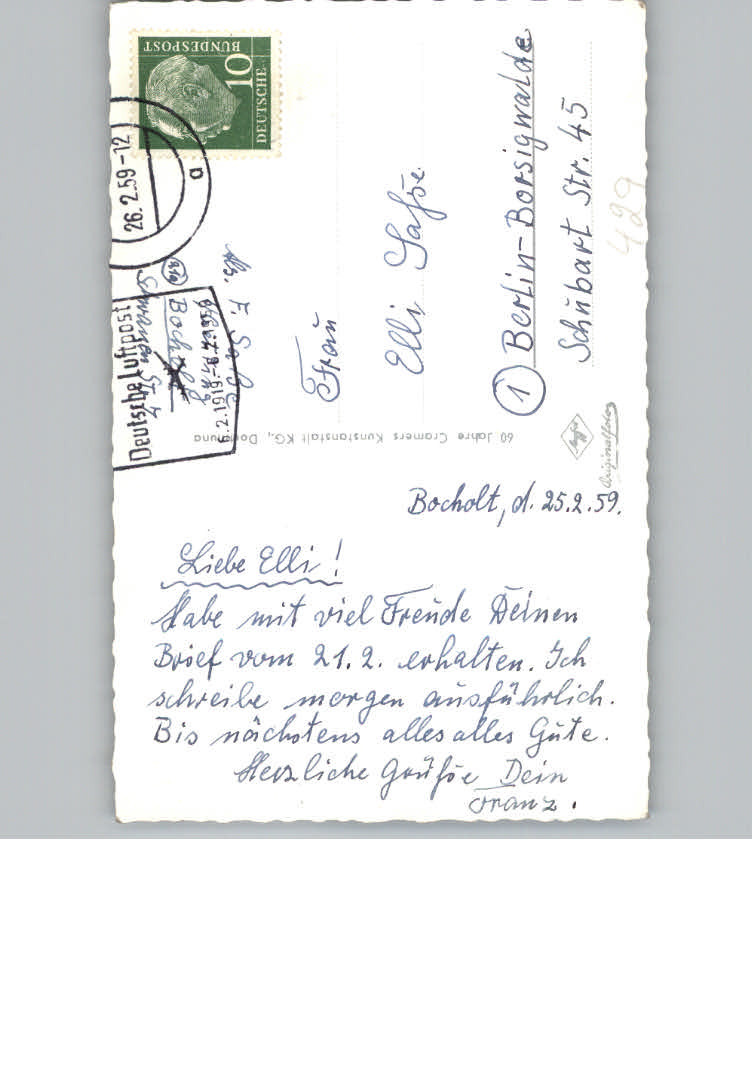 Bocholt, d. 25.2.59.
Liebe Elli!
Habe mit viel Freude Deinen
Brief vom 21.2. erhalten. Ich
schreibe morgen ausführlich.
Bis nächstens alles alles Gute.
Herzliche Grüße Dein
Franz.
DEUTSCHE
BUNDESPOST
10
26.2.59-12
a
Deutsche Luftpost
6.2.1919-6.2.1959
Abs. F.
Bocholt
Frau
Elli
1 Berlin-Borsigwalde
Schubart Str. 45
429
60 Jahre Cramers Kunstanstalt KG., Dortmund
Agfa
Originalfoto